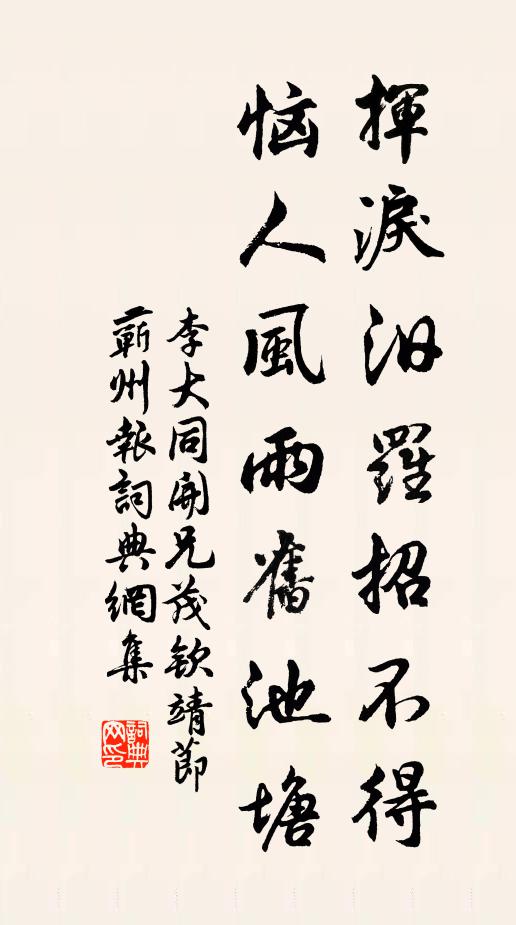 揮淚汨羅招不得
惱人風雨舊池塘
李大同開兄茂欽靖節
蘄州報詞典網集
詞典
网印